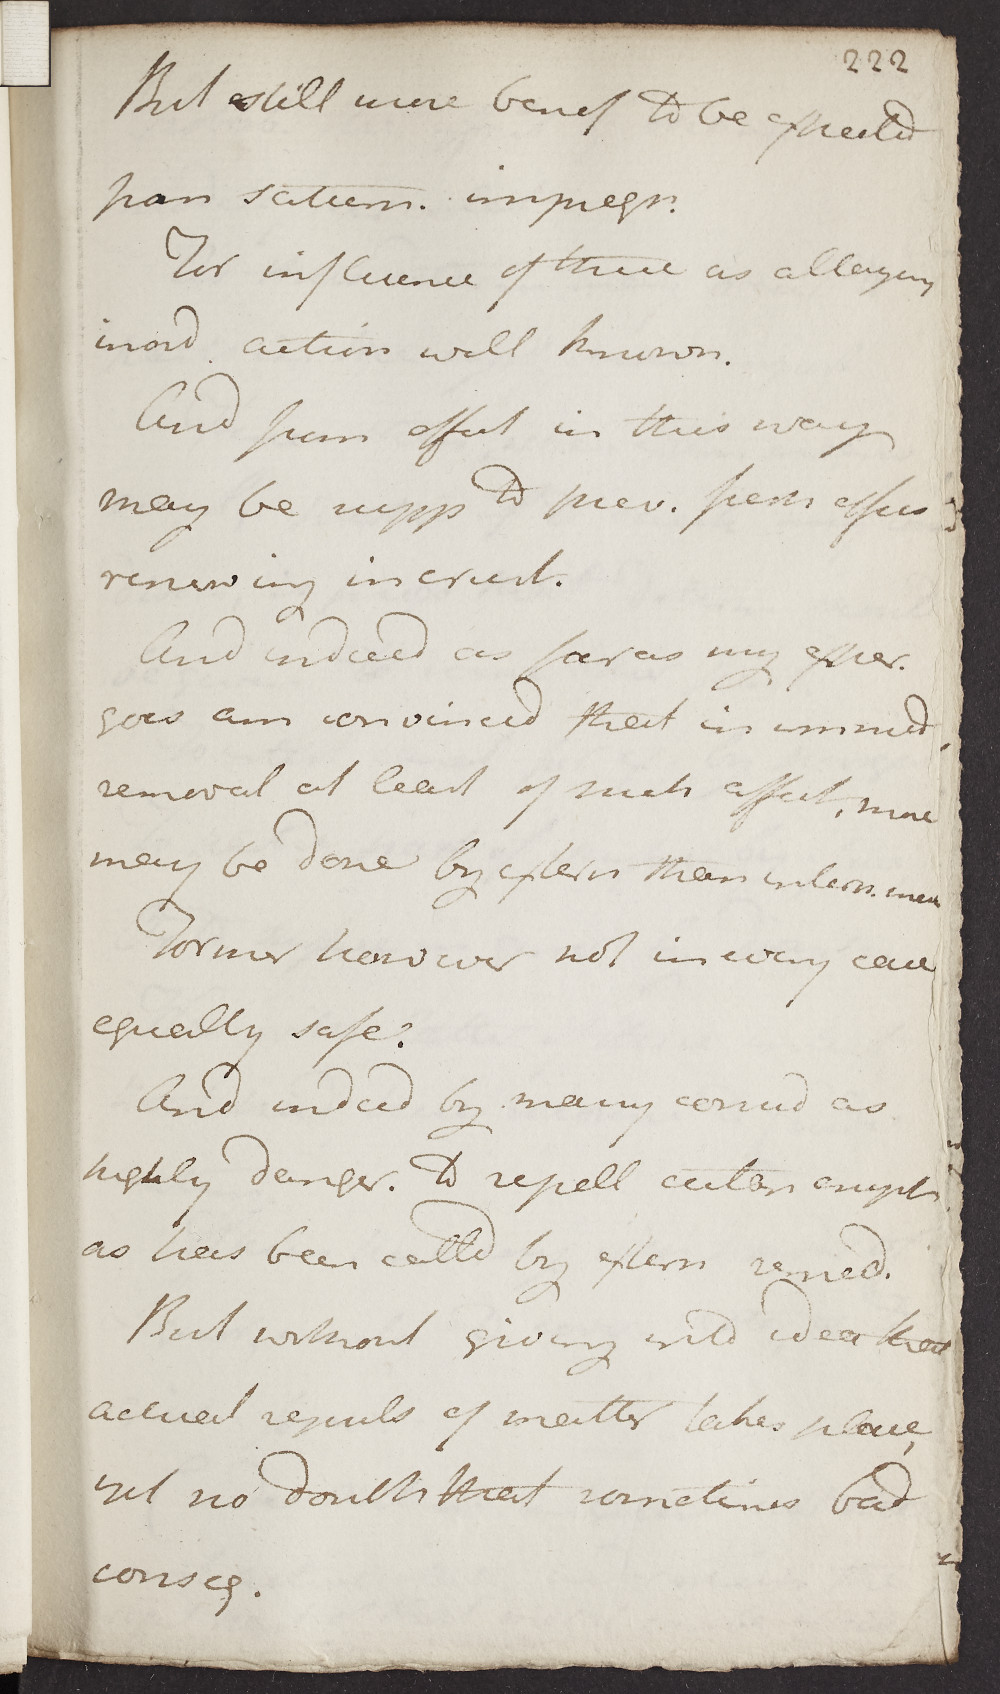 222
But still more benef to be expected
from saturn. impregn.
For influence of these as allaying
inord. action well known.
And from effect in this way
may be supp to prev. fresh effus
renewing incrust.
And indeed as far as my exper.
goes am convinced that in immed.
removal at least of such affect, more
may be done by extern than intern. mea
Former however not in every case
equally safe.
And indeed by many consid as
highly danger. to repell cutan erupt
as has been calld by extern remed.
But without giving into idea that
actual repuls of matter takes place,
yet no doubt that sometimes bad
conseq.